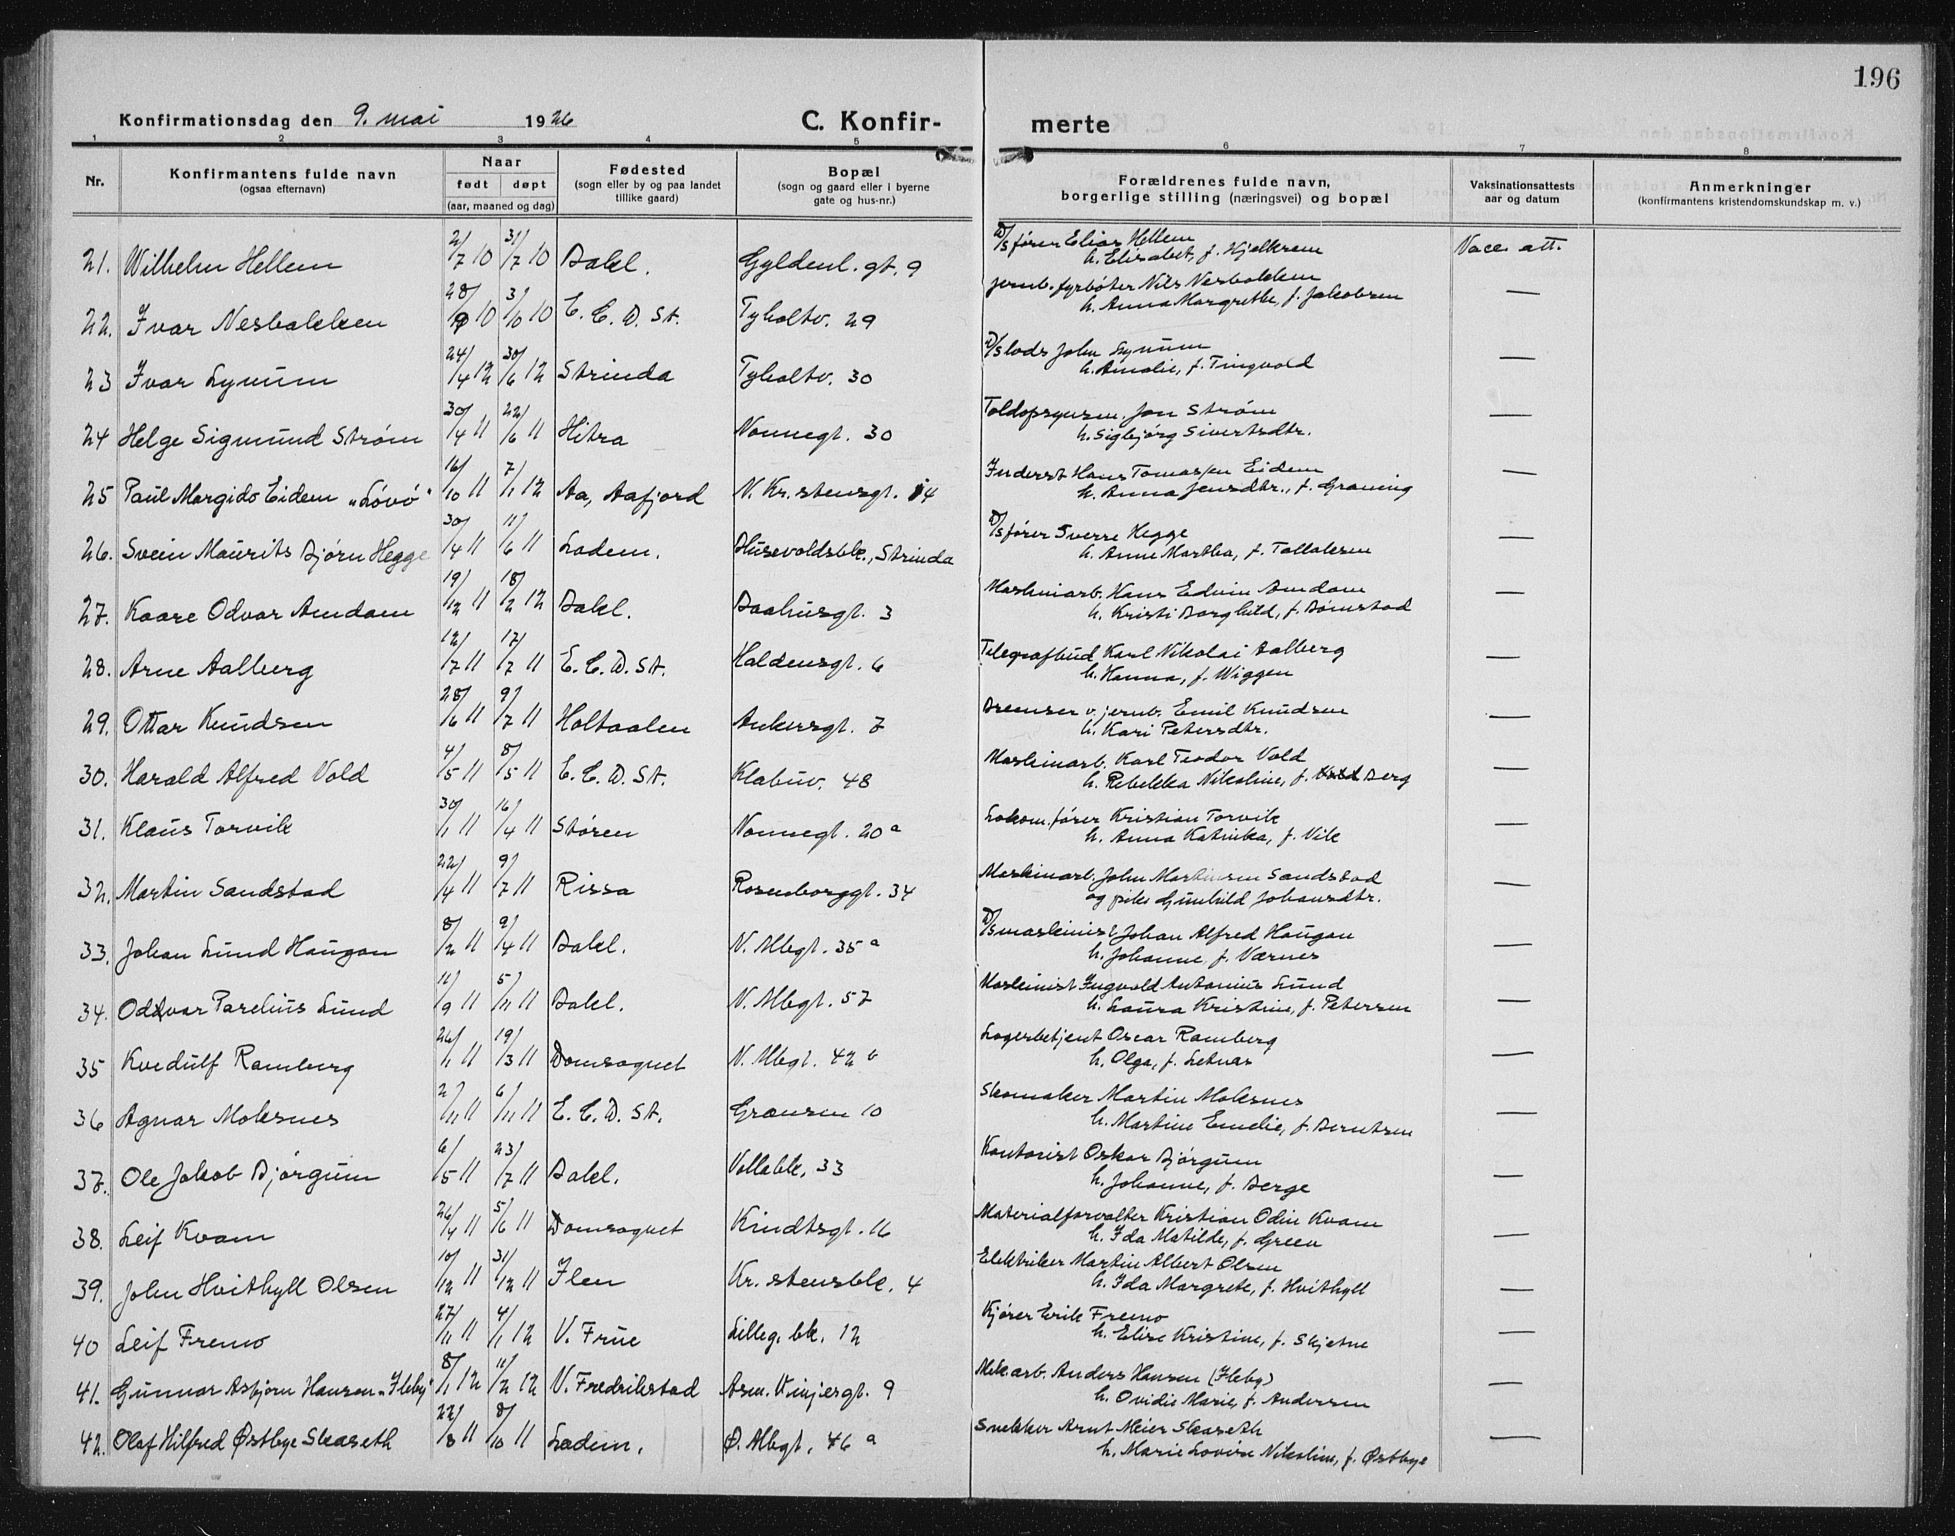 196
Konfirmationsdag den 9. mai 1926 C. Konfir- merte
1 2 3 4 5 6 7 8
Nr. Konfirmantens fulde navn (ogsaa efternavn) Naar født døpt (aar, maaned og dag) Fødested (sogn eller by og paa landet tillike gaard) Bopæl (sogn og gaard eller i byerne gate og hus-nr.) Forældrenes fulde navn, borgerlige stilling (næringsvei) og bopæl Vaksinationsattests aar og datum Anmerkninger (konfirmantens kristendomskundskap m. v.)
21. Wilhelm Hellem 2/7 10 31/7 10 Bakl. Gyldenl. gt. 9 D/sfører Elias Hellem Vacc. att.
h. Elisabet, f. Hjelkrem
22. Ivar Nesbakken 28/9 10 3/10 10 E. C. D. St. Tyholtv. 29 Jernb. fyrbøter Nils Nesbakken —
h. Anna Margrethe, f. Jakobsen
23 Ivar Lynum 24/4 12 30/6 12 Strinda Tyholtv. 30 D/slods John Lynum —
h. Amalie, f. Tingvold
24 Helge Sigmund Strøm 30/4 11 22/6 11 Hitra Nonnegt. 30 Toldopsynsm. Jon Strøm —
h. Sigbjørg Sivertsdtr.
25 Paul Margido Eidem "Lövö" 16/10 11 7/1 12 Aa, Aafjord N. Kr.stensgt. 14 Inderst Hans Tomassen Eidem —
h. Anna Jensdtr., f. Graning
26. Svein Maurits Bjørn Hegge 30/4 11 11/6 11 Ladem. Husevoldsbk., Strinda D/sfører Sverre Hegge —
h. Anne Martha, f. Tollaksen
27. Kaare Odvar Amdam 19/12 11 18/2 12 Bakl. Baahusgt. 3 Maskinarb. Hans Edvin Amdam —
h. Kristi Borghild, f. Bømstad
28. Arne Aalberg 12/7 11 17/7 11 E. C. D. St. Haldensgt. 6 Telegrafbud Karl Nikolai Aalberg —
h. Hanna, f. Wiggen
29. Ottar Knudsen 28/6 11 9/7 11 Holtaalen Ankersgt. 7 Bremser v. jernb. Emil Knudsen —
h. Kari Petersdtr.
30. Harald Alfred Vold 4/5 11 8/5 11 E. C. D. St. Klæbuv. 48 Maskinarb. Karl Teodor Vold —
h. Rebekka Nikoline, f. Berg
31. Klaus Torvik 30/1 11 16/4 11 Støren Nonnegt. 20 a Lokom.fører Kristian Torvik —
h. Anna Katinka, f. Vik
32. Martin Sandstad 22/4 11 9/7 11 Rissa Rosenborggt. 34 Maskinarb. John Martinsen Sandstad —
og pike Gunhild Johansdtr.
33. Johan Lund Haugan 8/2 11 9/4 11 Bakl. N. Mbgt. 35 a D/smaskinist Johan Alfred Haugan —
h. Johanne, f. Værnes
34. Oddvar Parelius Lund 11/9 11 5/11 11 Bakl. N. Mbgt. 57 Maskinist Ingvald Antonius Lund —
h. Laura Kristine, f. Petersen
35 Kvedulf Ramberg 26/1 11 19/3 11 Domsognet N. Mbgt. 42 b Lagerbetjent Oscar Ramberg —
h. Olga, f. Letnæs
36 Agnar Moksnes 2/11 11 6/11 11 E. C. D. St. Grænsen 10 Skomaker Martin Moksnes —
h. Martine Emelie, f. Berntsen
37. Ole Jakob Bjørgum 6/5 11 23/7 11 Bakl. Vollabk. 33 Kontorist Oskar Bjørgum —
h. Johanne, f. Berge
38. Leif Kvam 26/4 11 5/6 11 Domsognet Kindtsgt. 16 Materialforvalter Kristian Odin Kvam —
h. Ida Matilde, f. Green
39. John Hvithyll Olsen 10/12 11 31/12 11 Ilen Kr.stensbk. 4 Elektriker Martin Albert Olsen —
h. Ida Margrete, f. Hvithyll
40 Leif Fremo 27/11 11 4/1 12 V. Frue Lilleg. bk. 12 Kjører Erik Fremo —
h. Elise Kristine, f. Skjetne
41. Gunnar Asbjørn Hansen "Ileby" 8/1 12 11/2 12 V. Fredrikstad Asm. Vinjesgt. 9 Mek.arb. Anders Hansen (Ileby) —
h. Ovidie Marie, f. Andersen
42. Olaf Hilfred Østbye Skaseth 22/8 11 8/10 11 Ladem. Ø. Mbgt. 46 a Snekker Arnt Meier Skaseth —
h. Marie Lovise Nikoline, f. Østbye